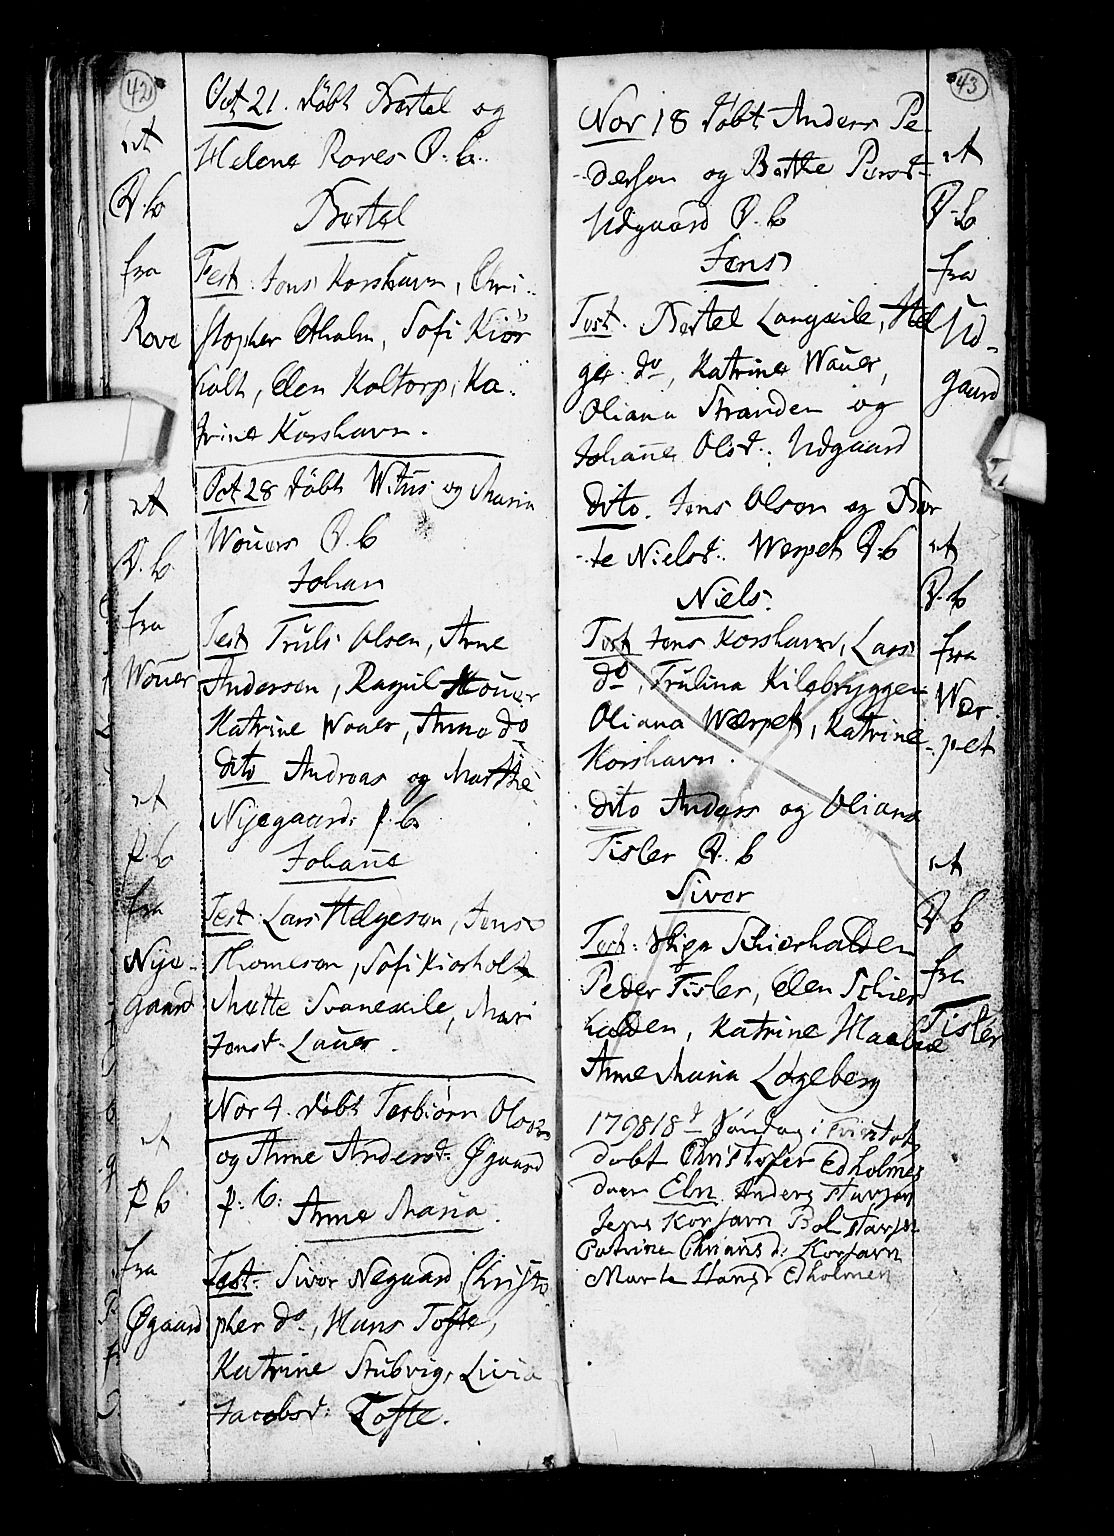 42
et
P. b
fra
Rove
et
P. b.
fra
Wouer
et
p. b
fra
Nye-
gaard
et
p b
fra
Øgaard
Oct 21. døbt Bertel og
Helene Roves P. b.
Bertel
Test. Jens Korshavn, Chri-
stopher Ahalm, Sofi Kiør
holt, Elen Koltorp, Ka-
trine Korshavn.
Oct 28 døbt Witus og Maria
Wouers P. b
Johan
Test Truls Olsen, Arne
Andersen, Ragnil Wouer
Katrine Wouer, Anne do
dito Andreas og Marthe
Nyegaard. p. b.
Johane
Test Lars Helgesen, Jens
Thomesen, Sofi Kiørholt
Mætte Svanekile, Mari
Jensd. Lauer.
Nov 4. døbt Torbiørn Olsen
og Anne Andersd. Øgaard
p. b. Anne Maria.
Test. Sivor Negaard, Christo
pher do, Hans Tofte,
Katrine Stubvig, Livia
Jacobsd: Tofte.
43
Nov 18 døbt Anders Pe-
-dersen og Berthe Persd-
Udgaard P. b
Jens
Test. Bertel Langekile, Hel
ge do, Katrine Wauer,
Oliana Stranden og
Johane Olsd. Udgaard
dito. Jens Olsen og Ber
-te Nielsd. Werpet P. b
Niels.
Test Jens Korshavn, Lars
do, Trulina Kilebryggen
Oliana Werpet, Katrine
Korshavn.
dito Anders og Oliana
Tisler P. b
Sivor
Test: Schierhalden
Peder Tisler, Elen Schier
halden, Katrine
Anne Maria Løgeberg
1798 18d Søndag i
døbt Christofer Edholmes
Elen Anders
Jens Korsavn
Christiansd: Korsavn
Marte Hansd Edholmen
et
P. b
fra
Ud-
gaard
et
P. b
fra
Wer
-pet
et
P b
fra
Tisler